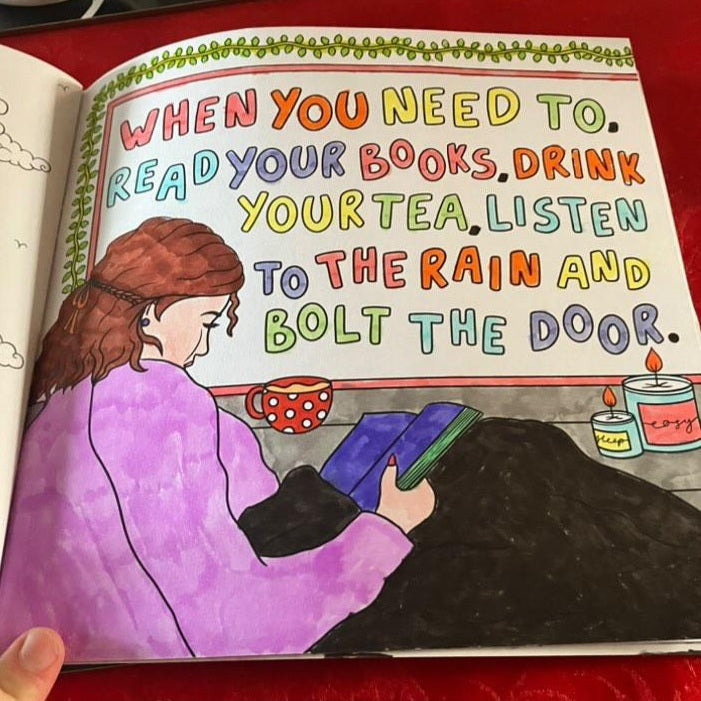 WHEN YOU NEED TO.
READ YOUR BOOKS. DRINK
YOUR TEA. LISTEN
TO THE RAIN AND
BOLT THE DOOR.
sleep
cosy